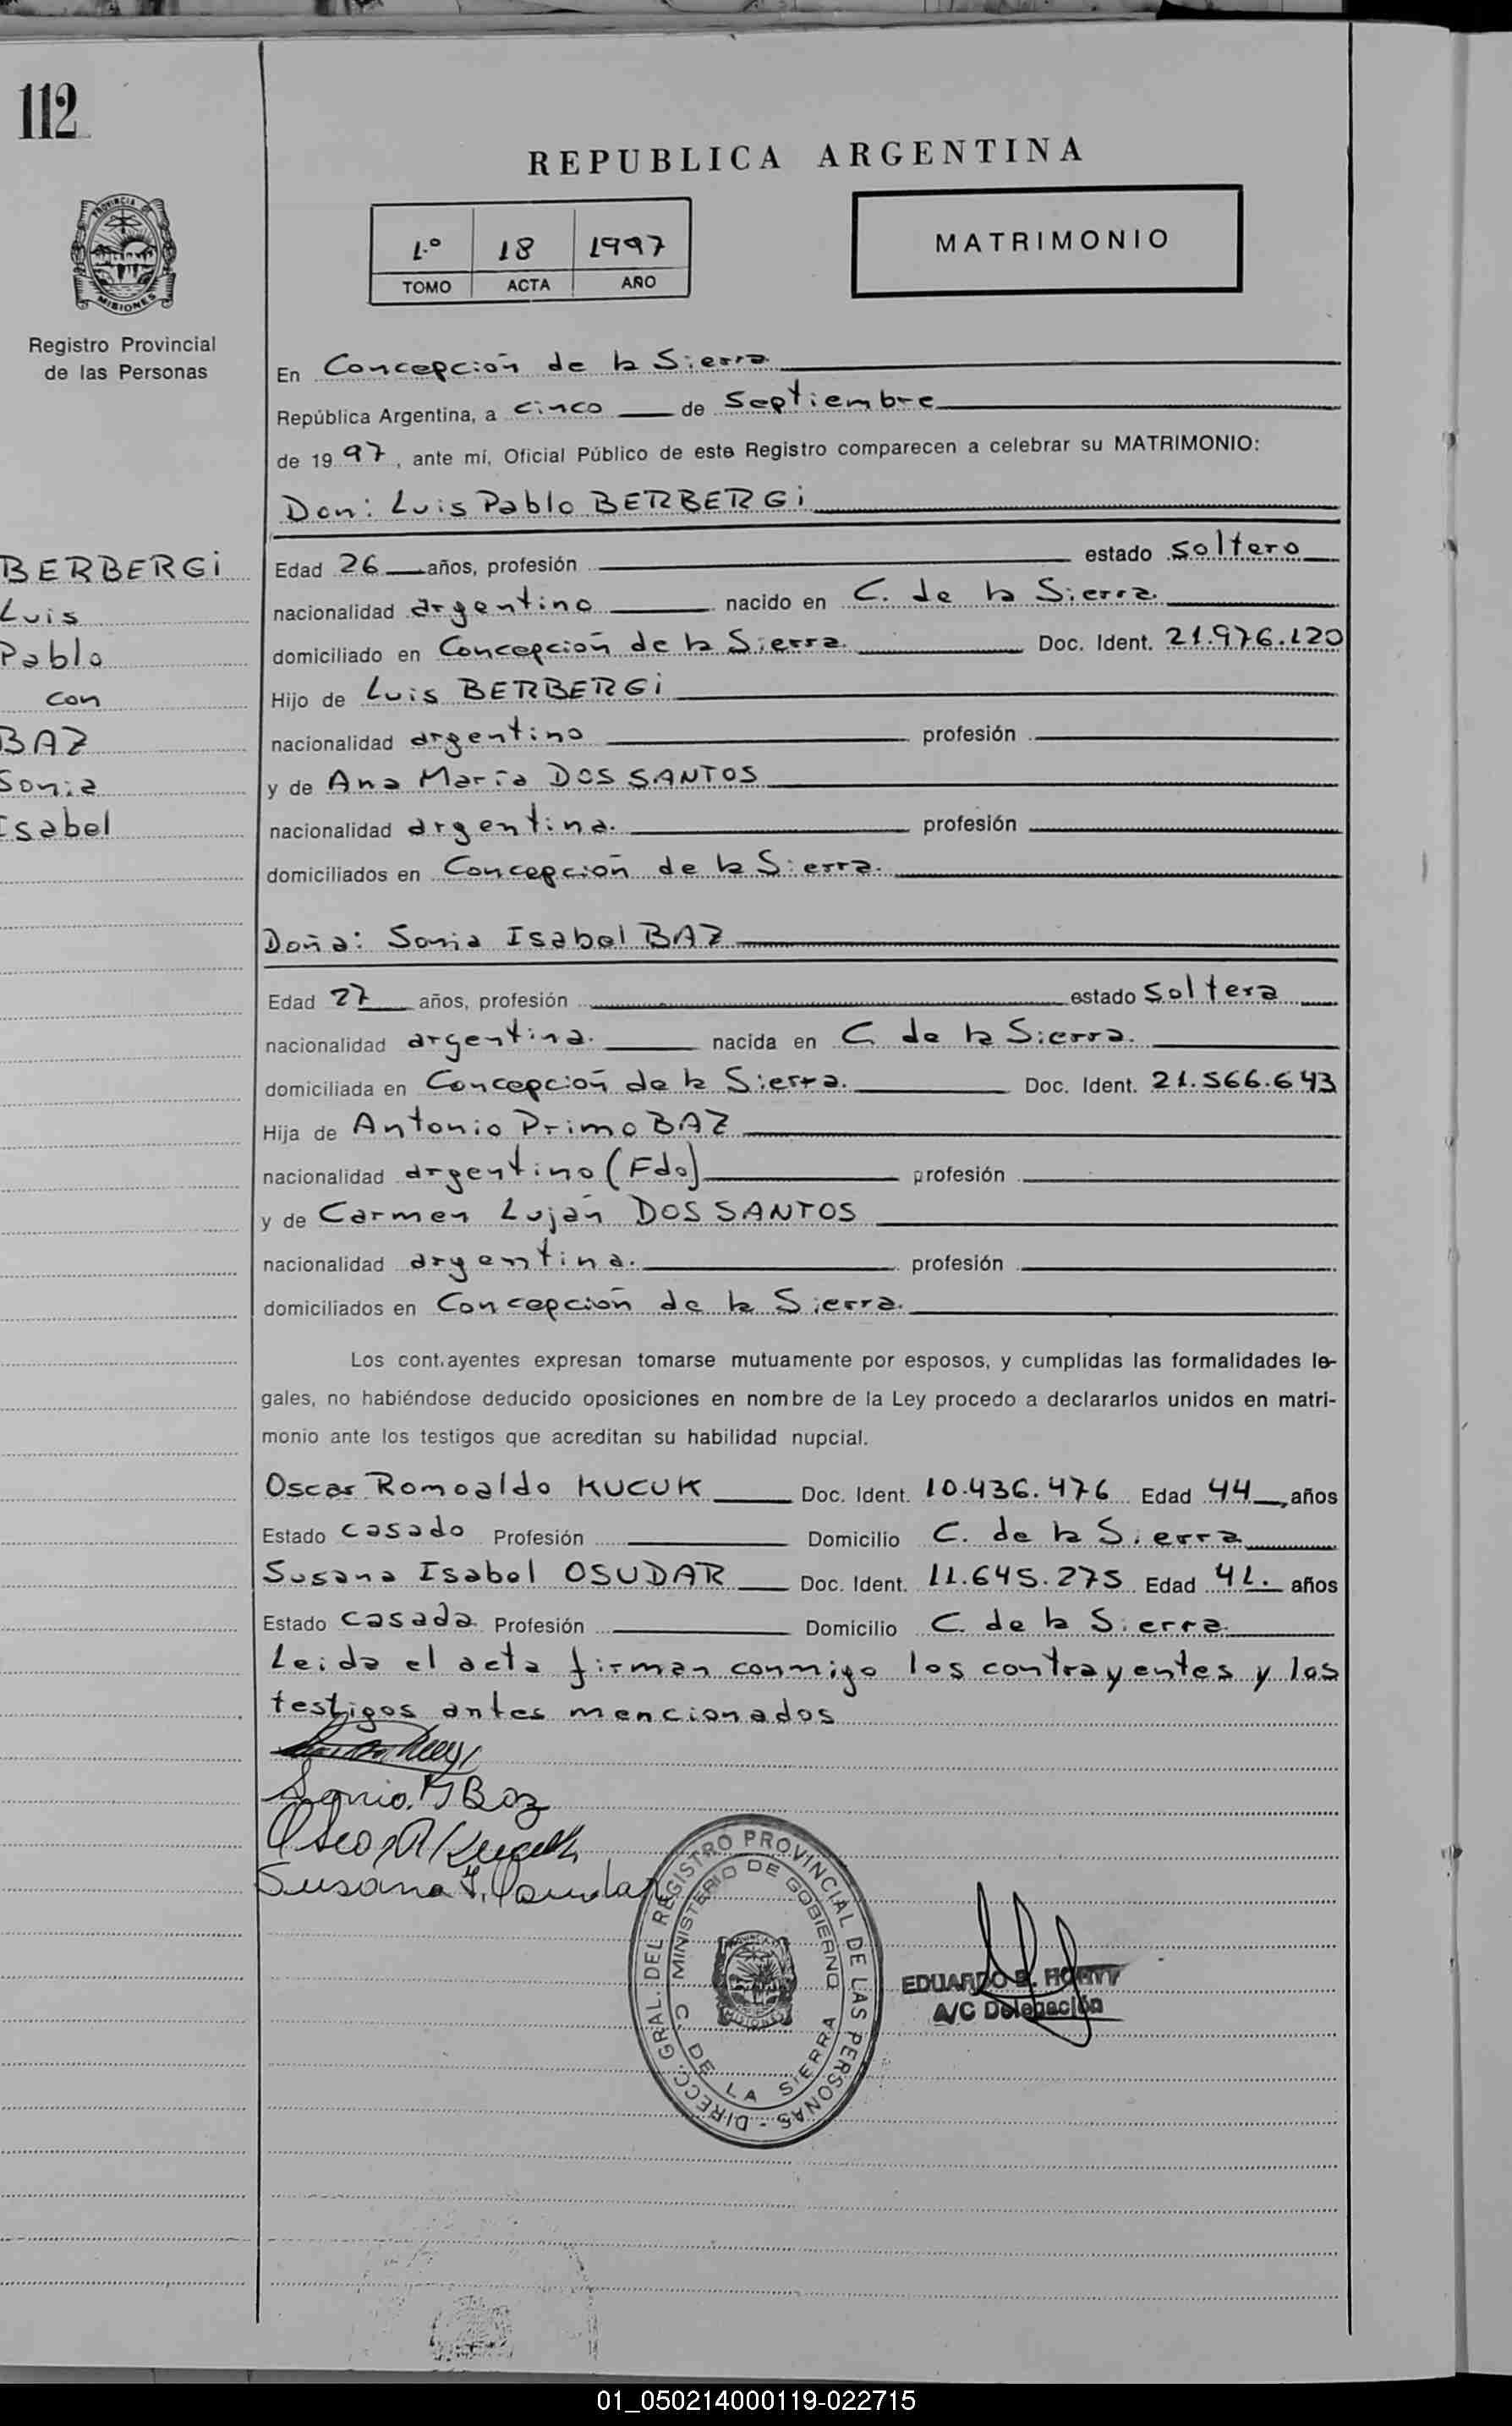 112
PROVINCIA DE
MISIONES
Registro Provincial
de las Personas
BERBERGi
Luis
Pablo
con
BAZ
Sonia
Isabel
REPUBLICA ARGENTINA
1.º 18 1997
TOMO ACTA AÑO
MATRIMONIO
En Concepción de la Sierra
República Argentina, a cinco de Septiembre
de 1997, ante mí, Oficial Público de este Registro comparecen a celebrar su MATRIMONIO:
Don: Luis Pablo BERBERGi
Edad 26 años, profesión estado soltero
nacionalidad argentino nacido en C. de la Sierra.
domiciliado en Concepción de la Sierra. Doc. Ident. 21.976.120
Hijo de Luis BERBERGi
nacionalidad argentino profesión
y de Ana María DOS SANTOS
nacionalidad argentina. profesión
domiciliados en Concepción de la Sierra.
Doña: Sonia Isabel BAZ
Edad 27 años, profesión estado soltera
nacionalidad argentina. nacida en C. de la Sierra.
domiciliada en Concepción de la Sierra. Doc. Ident. 21.566.643
Hija de Antonio Primo BAZ
nacionalidad argentino (Fdo) profesión
y de Carmen Luján DOS SANTOS
nacionalidad argentina. profesión
domiciliados en Concepción de la Sierra.
Los contrayentes expresan tomarse mutuamente por esposos, y cumplidas las formalidades le-
gales, no habiéndose deducido oposiciones en nombre de la Ley procedo a declararlos unidos en matri-
monio ante los testigos que acreditan su habilidad nupcial.
Oscar Romoaldo KUCUK Doc. Ident. 10.436.476 Edad 44, años
Estado casado Profesión Domicilio C. de la Sierra
Susana Isabel OSUDAR Doc. Ident. 11.645.275 Edad 41. años
Estado casada Profesión Domicilio C. de la Sierra
Leida el acta firman conmigo los contrayentes y los
testigos antes mencionados
Sonia I Baz
Susana I.
DIRECC. GRAL. DEL REGISTRO PROVINCIAL DE LAS PERSONAS -
MINISTERIO DE GOBIERNO
C. DE LA SIERRA
MISIONES
EDUARDO
A/C Delegación
01_050214000119-022715